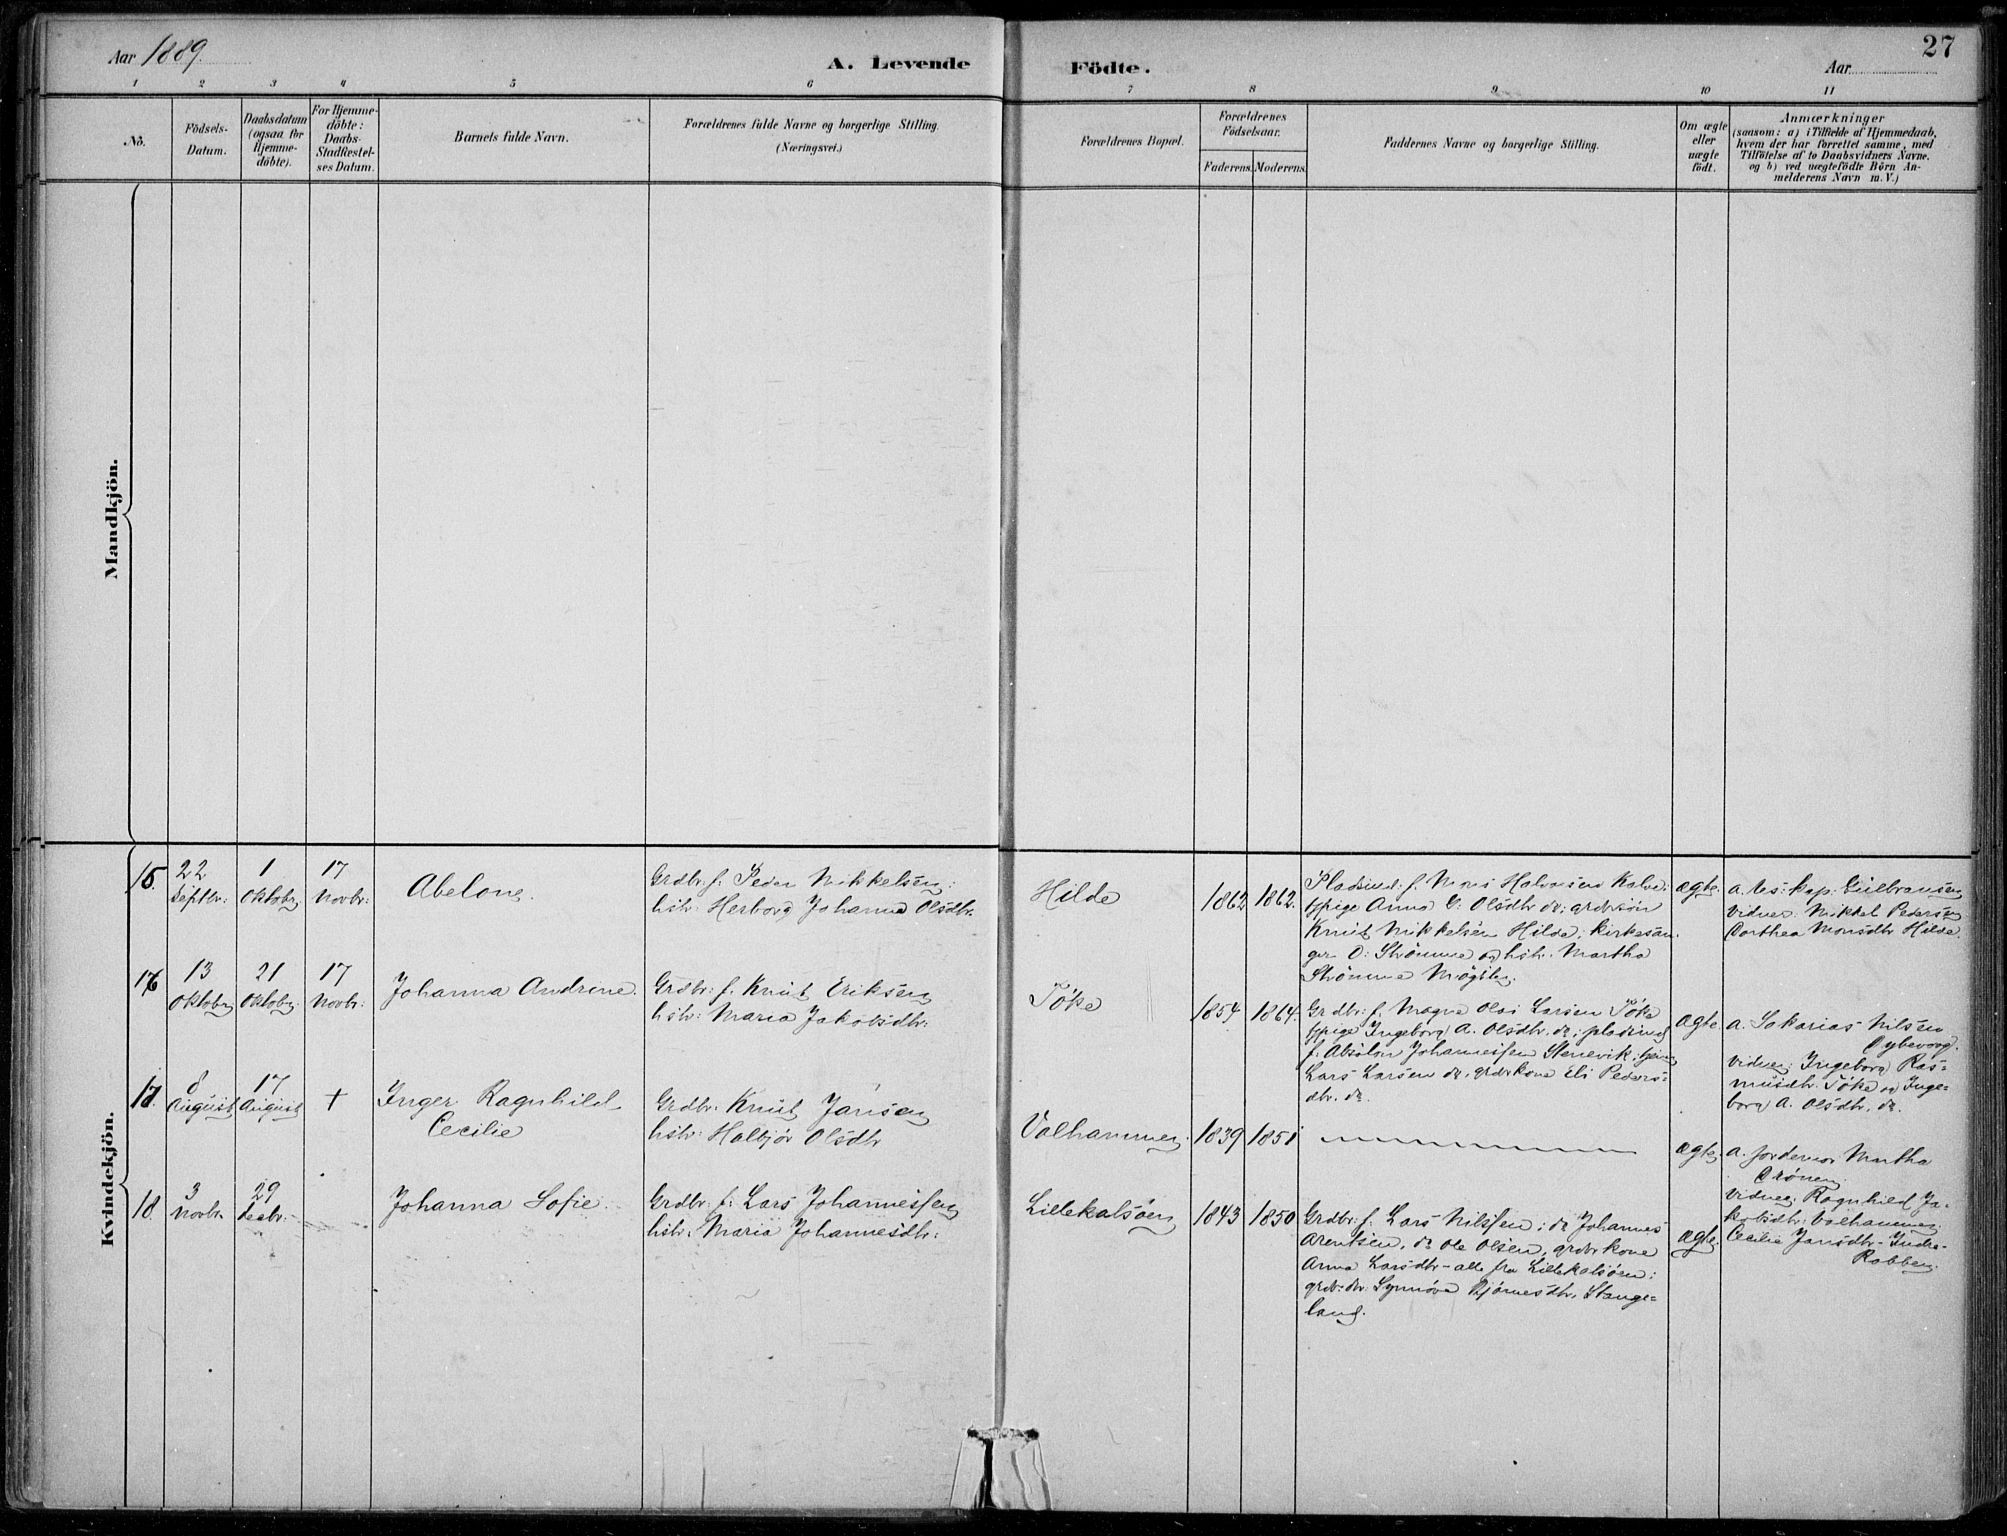 Aar 1889.
A. Levende Födte.
Aar
27
1 2 3 4 5 6 7 8 9 10 11
No.
Födsels-
Datum.
Daabsdatum
(ogsaa for
Hjemme-
döbte).
For Hjemme-
döbte:
Daabs-
Stadfæstel-
ses Datum.
Barnets fulde Navn.
Forældrenes fulde Navne og borgerlige Stilling.
(Næringsvei.)
Forældrenes Bopæl.
Forældrenes
Födselsaar.
Faderens. Moderens.
Faddernes Navne og borgerlige Stilling.
Om ægte
eller
uægte
födt.
Anmærkninger
(saasom: a) i Tilfælde af Hjemmedaab,
hvem der har forrettet samme, med
Tilföielse af to Daabsvidners Navne.
og b) ved uægtefödte Börn An-
melderens Navn m. V.)
Mandkjön.
Kvindekjön.
15.
22
Septbr:
1
Oktober
17
Novbr:
Abelone.
Grdbr: f. Peder Mikkelsen;
hstr: Herborg Johanna Olsdtr.
Hilde
1862
1862.
Pladsmd: f. Mons Halvorsen Kalve;
pige Anna Olsdtr do; grdbrsön
Knut Mikkelsen Hilde; kirkesan-
ger O. Strömme og hstr. Martha
Strömme
ægte
a. kap:
Vidner: Mikkel Pedersen
Dorthea Monsdtr Hilde.
16
13
Oktober
21
Oktober
17
Novbr:
Johanna Andrine.
Grdbr: f. Knut Eriksen
hstr: Maria Jakobsdtr:
Töke
1854
1864.
Grdbr: f. Magne Olai Larsen Töke
pige Ingeborg A. Olsdtr. do; pladsmd
f. Absalon Johannesen Stenevik;
Lars Larsen do, grdbrkone Eli Peders-
dtr. do.
ægte
a. Sakarias Nilsen
Vidner: Ingeborg Ras-
musdtr. Töke og Inge-
borg A. Olsdtr. do.
17.
8
August
17
August
+
Inger Ragnhild
Cecilie
Grdbr: Knut Jansen
hstr: Halbjör Olsdtr
Valhammer.
1839
1851
ægte
a. Jordemor Martha
Vidner: Ragnhild Ja-
kobsdtr. Valhammer;
Cecilie Jansdtr. Indre-
Rabben.
18.
3
Novbr.
29
Decbr:
Johanna Sofie.
Grdbr: f: Lars Johannessen
hstr: Maria Johannesdtr:
Lillekalsöen
1843
1850
Grdbr: f. Lars Nilsen; do Johannes
Arentsen, do Ole Olsen, grdbrkone
Anna Larsdtr - alle fra Lillekalsöen;
grdbrdtr: Synnöve Björnesdtr. Stange-
land.
ægte